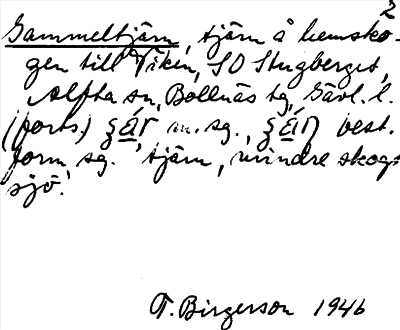 2
Gammeltjärn, tjärn å hemsko-
gen till Viken, SO Stugberget,
Alfta sn, Bollnäs tg, Gävl. l.
(forts.) m. sg., best.
form sg. 'tjärn, mindre skogs-
sjö.'
T. Birgerson 1946